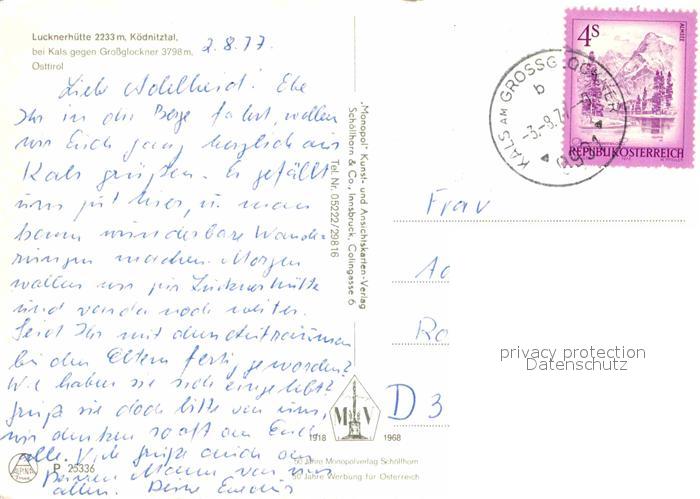 Lucknerhütte 2233 m, Ködnitztal,
bei Kals gegen Großglockner 3798 m,
Osttirol
2.8.77.
Liebe Adelheid! Ehe
Ihr in die Berge fahrt, wollen
wir Euch ganz herzlich aus
Kals grüßen. Es gefällt
uns gut hier, man
kann wunderbare Wande-
rungen machen. Morgen
wollen wir zur Lucknerhütte
und von da noch weiter.
Seid Ihr mit dem
bei den Eltern fertig geworden?
Wie haben sie sich eingelebt?
Grüß sie doch bitte von uns,
wir denken so oft an Euch
alle. Viele Grüße auch an
Deinen Mann von uns
allen. Deine
"Monopol" Kunst- und Ansichtskarten-Verlag
Schöllhorn & Co., Innsbruck, Colingasse 6
Tel. Nr. 05222/29816
4S
ALMSEE
REPUBLIK ÖSTERREICH
KALS AM GROSSGLOCKNER
b
-3.-8.77-
9981
Frau
Ad
Ro
D 3
privacy protection
Datenschutz
M V
1918 1968
50 Jahre Monopolverlag Schöllhorn
50 Jahre Werbung für Österreich
ALPINA
P 25336